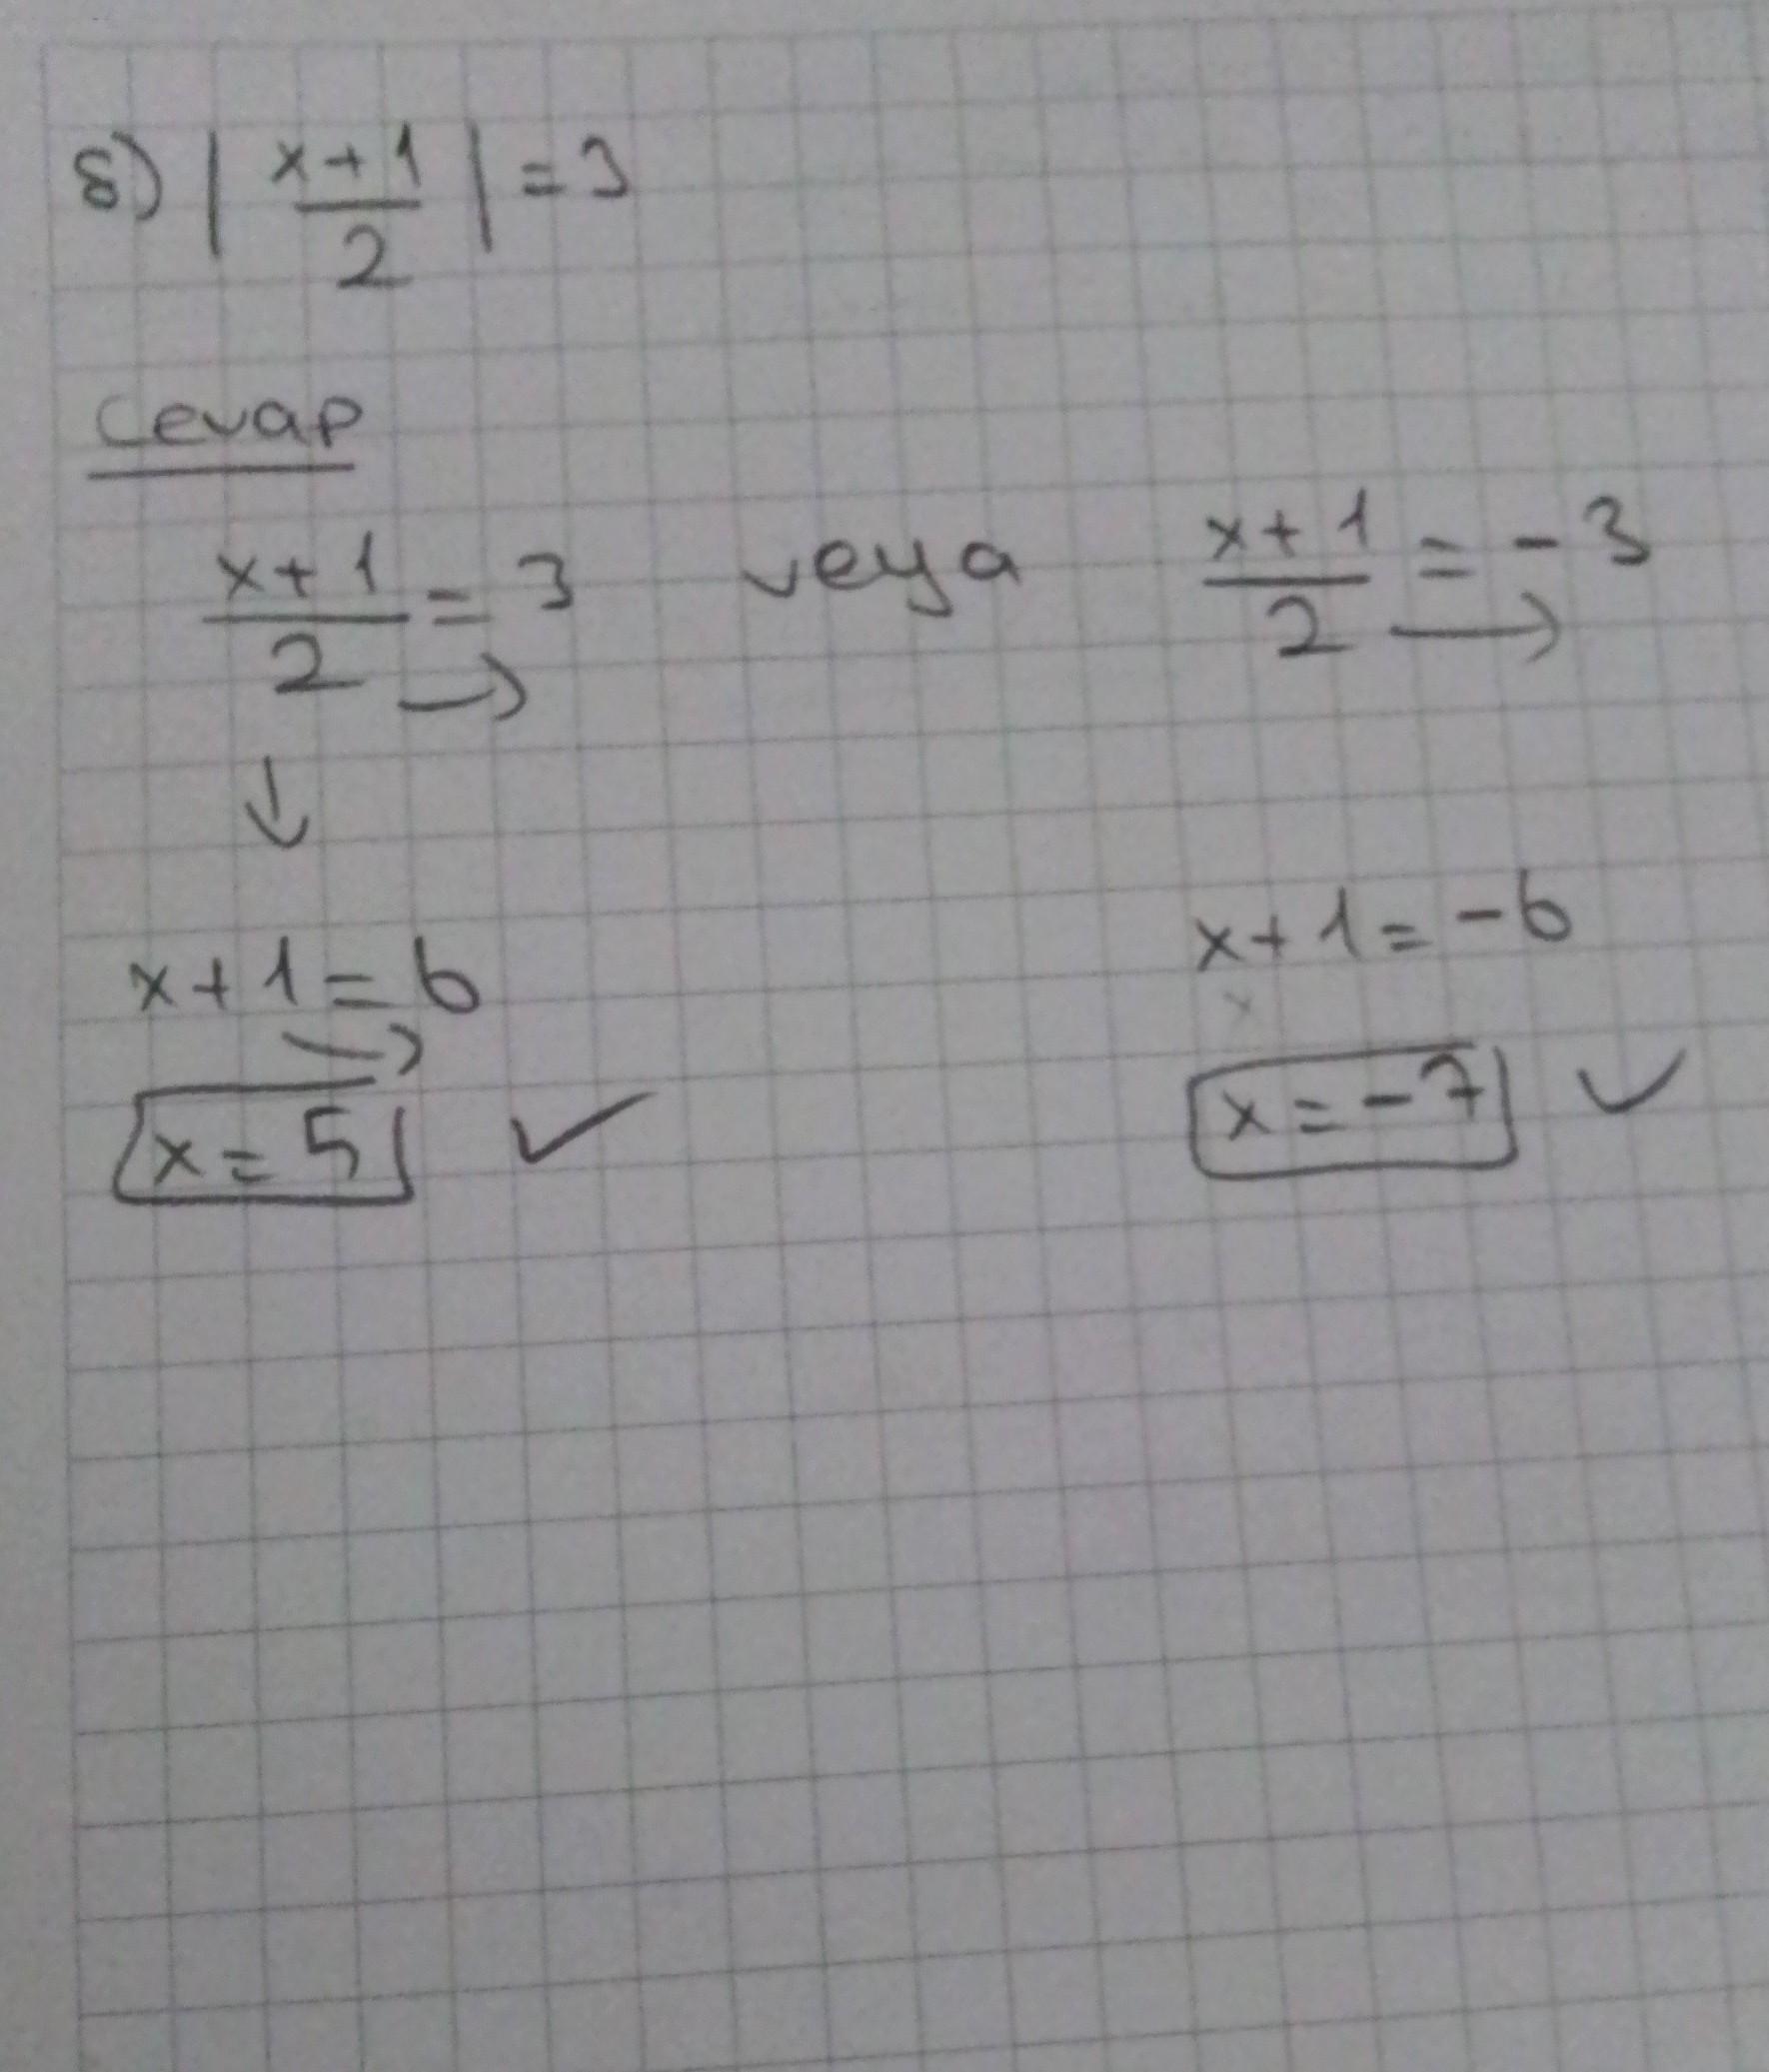 8) | x+1 / 2 | = 3
Cevap
x+1 / 2 = 3 veya x+1 / 2 = -3
x+1 = 6 x+1 = -6
x = 5 ✓ x = -7 ✓